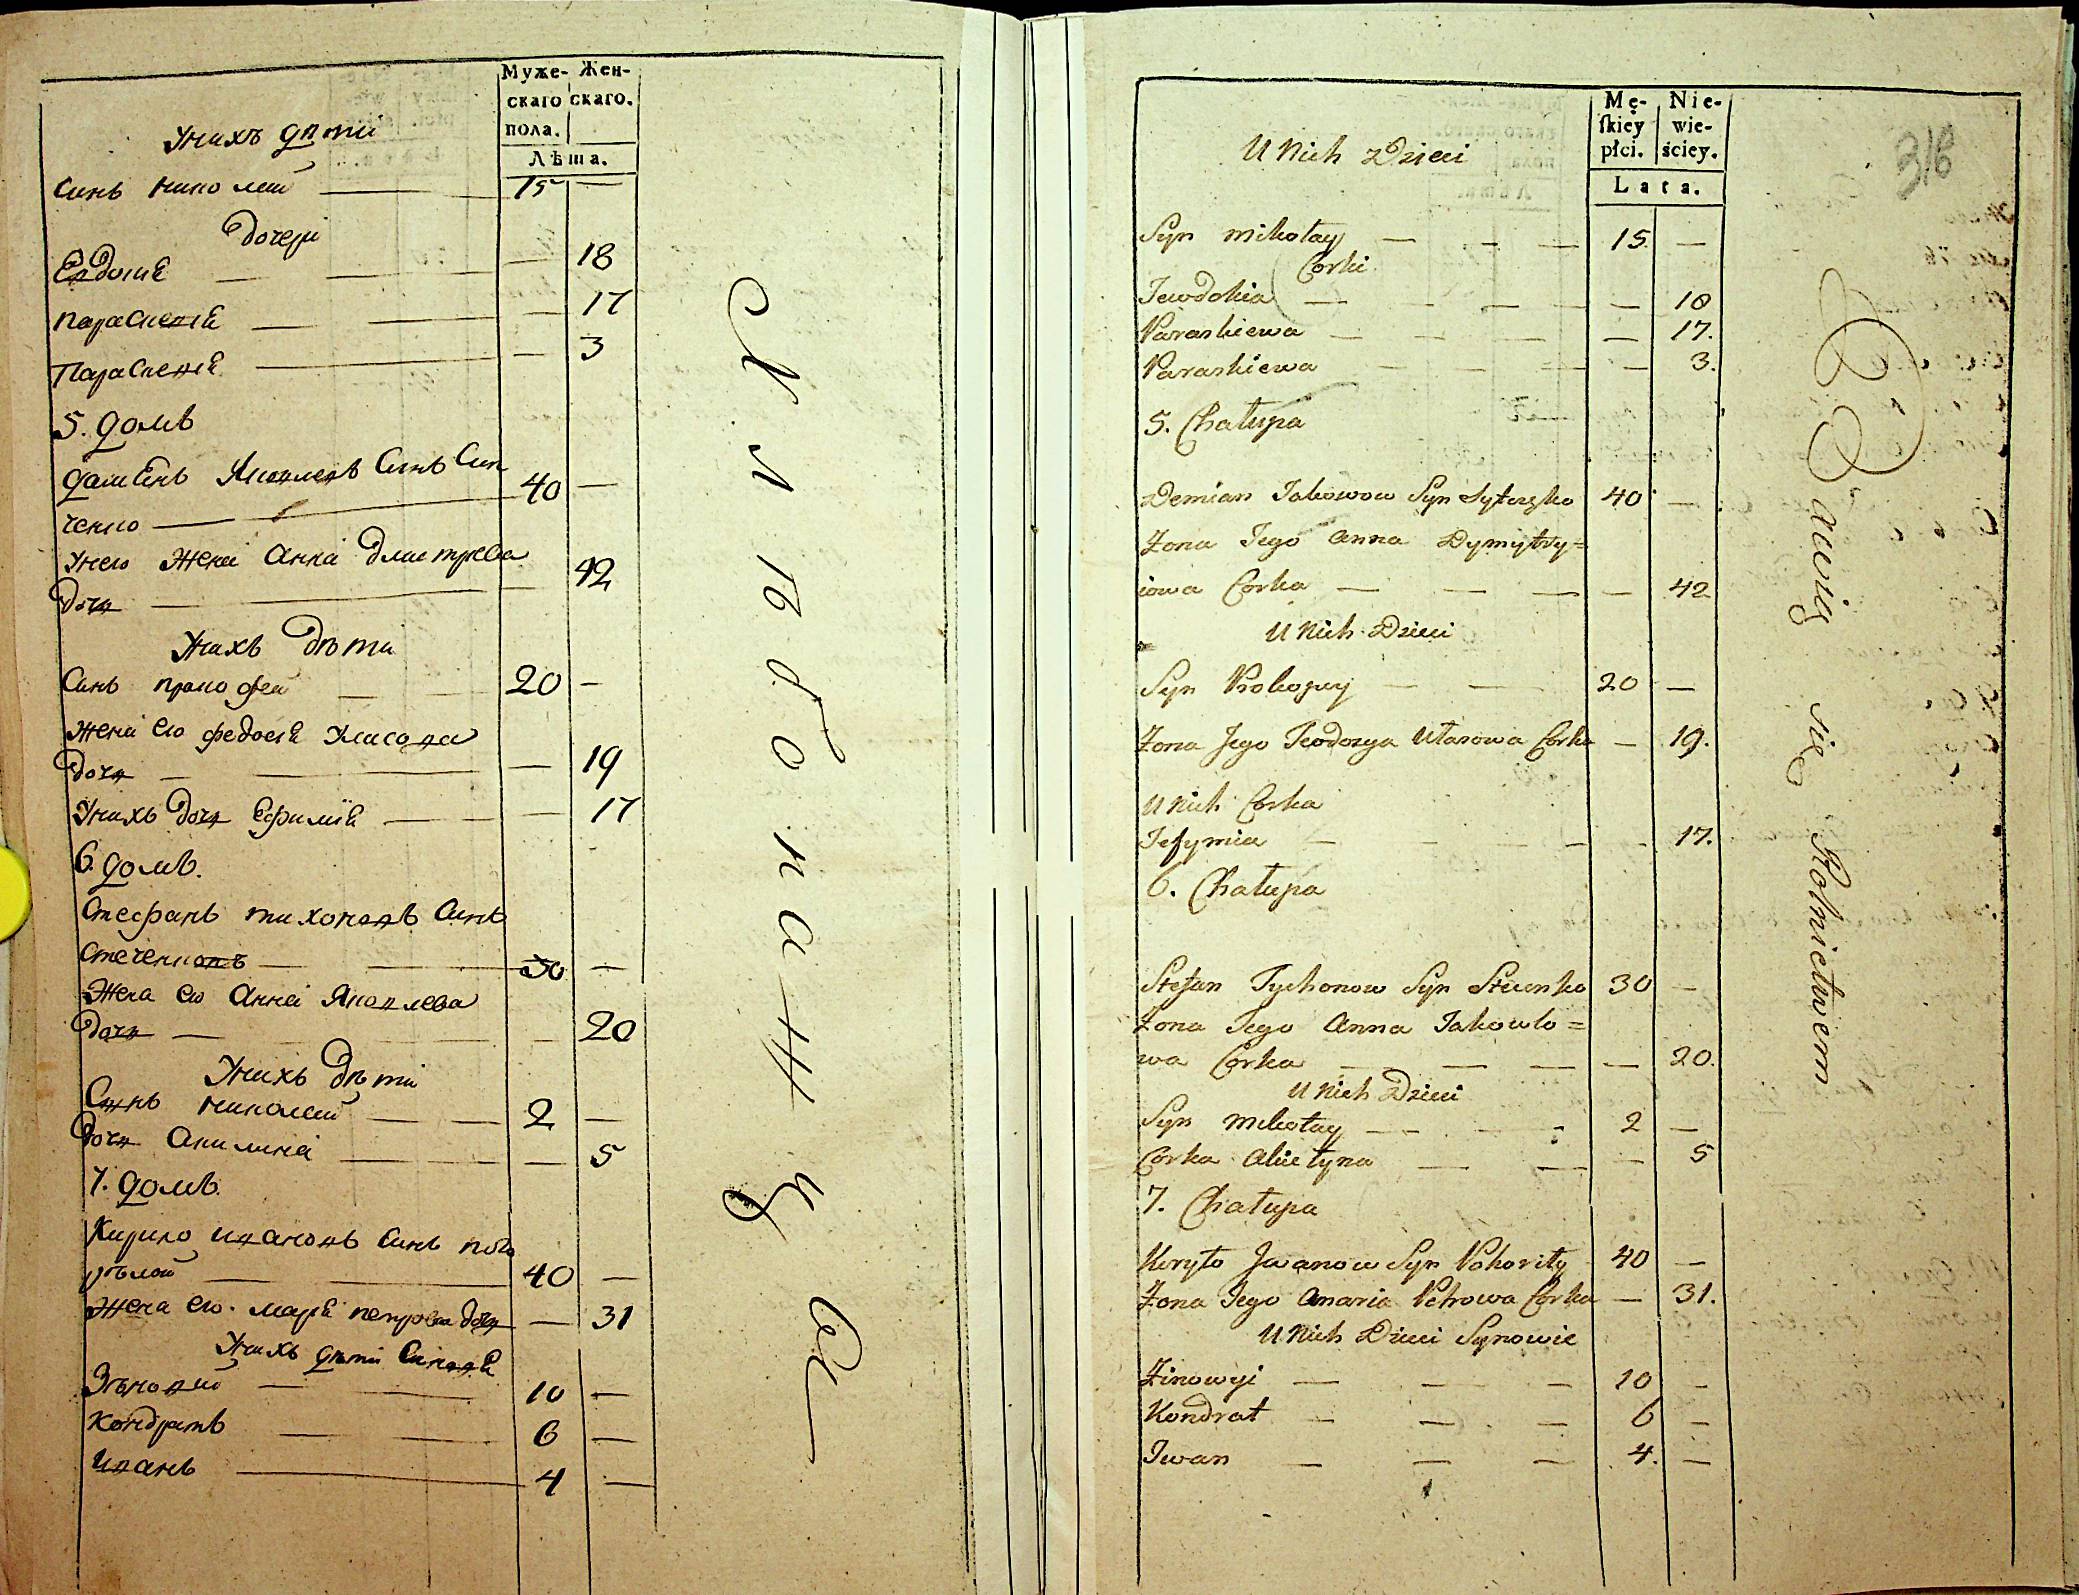 Муже-
скаго
пола.
Жен-
скаго.
Лѣта.
Унихъ дѣти
Синь николай — 15 —
Дочери
Евдокиѣ — — 18
параскевиѣ — — 17
Параскевиѣ — — 3
5. домъ
дамѣянь Яковлевъ Синь Сит
ченко — 40 —
унего Жена Анна дмитрева
Дочь — — 42
Унихъ Дѣти
Синь прокофей — 20 —
жена его федосиѣ
Дочь — — 19
Унихъ Дочь Ефимиѣ — — 17
6 домъ.
Стефань тихоновъ Синь
— 30 —
Жена его Анна Яковлева
Дочь — — 20
Унихъ Дѣти
Синь николай — 2 —
Дочь Акилина — — 5
7. домъ.
Кирило ивановъ Синь пого
рѣлой — 40 —
Жена его. мариѣ петрова дочь — 31
Унихъ дѣти Синовѣ
Зѣновий — 10 —
Кондратъ — 6 —
иванъ — 4 —
Хлѣбопашцы
318
Mę-
ſkiey
płci.
Nie-
wie-
ściey.
Lata.
U Nich Dzieci
Syn Mikołay — 15. —
Corki
Jewdokia — — 18
Paraskiewa — — 17.
Paraskiewa — — 3.
5. Chałupa
Demian Jakowow Syn — 40 —
Żona Jego Anna Dymytry=
iowa Corka — — 42
U Nich Dzieci
Syn Prokopiy — 20 —
Żona Jego Teodozya Własowa Corka — 19.
U Nich Corka
Jefymia — — 17.
6. Chałupa
Stefan Tychonow Syn Stecenko 30 —
Żona Jego Anna Jakowlo=
wa Corka — — 20.
U Nich Dzieci
Syn Mikołay — 2 —
Corka Akiełyna — — 5
7. Chałupa
Kiryło Jwanow Syn Pohoriły 40 —
Żona Jego Maria Petrowa Corka — 31.
U Nich Dzieci Synowie
Zinowyi — 10 —
Kondrat — 6 —
Iwan — 4. —
Bawią się Rolnictwem